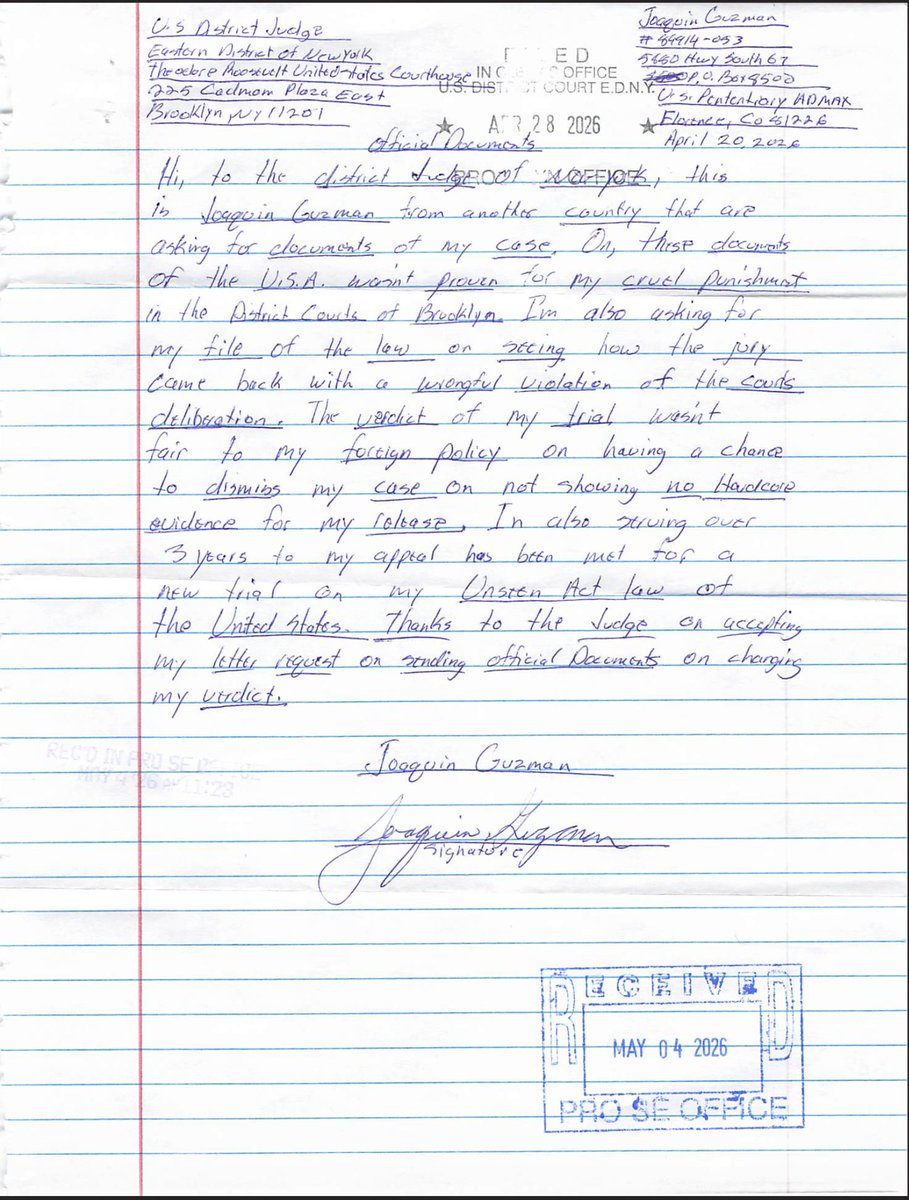 U.S District Judge
Eastern District of New York
Theodore Roosevelt United States Courthouse
225 Cadmom Plaza East
Brooklyn, NY 11201
Joaquin Guzman
# 89914-053
5880 Hwy South 67
P.O. Box 8502
U.S. Pententiary ADMAX
Florence, Co 81226
April 20, 2026
IN OFFICE
U.S. DISTRICT COURT E.D.N.Y.
★ APR 28 2026 ★
PRO OFFICE
Official Documents
Hi, to the district Judge of , this
is Joaquin Guzman from another country that are
asking for documents of my case. On, these documents
of the U.S.A. wasn't proven for my cruel punishment
in the District Courts of Brooklyn. I'm also asking for
my file of the law on seeing how the jury
came back with a wrongful violation of the courts
deliberation. The verdict of my trial wasn't
fair to my foreign policy on having a chance
to dismiss my case on not showing no Hardcore
evidence for my release. In also serving over
3 years to my appeal has been met for a
new trial on my Unseen Act law of
the United States. Thanks to the Judge on accepting
my letter request on sending official Documents on charging
my verdict.
REC'D IN PRO SE OFFICE
MAY 4 '26 11:23
Joaquin Guzman
Joaquin Guzman
Signature
RECEIVED
MAY 04 2026
PRO SE OFFICE